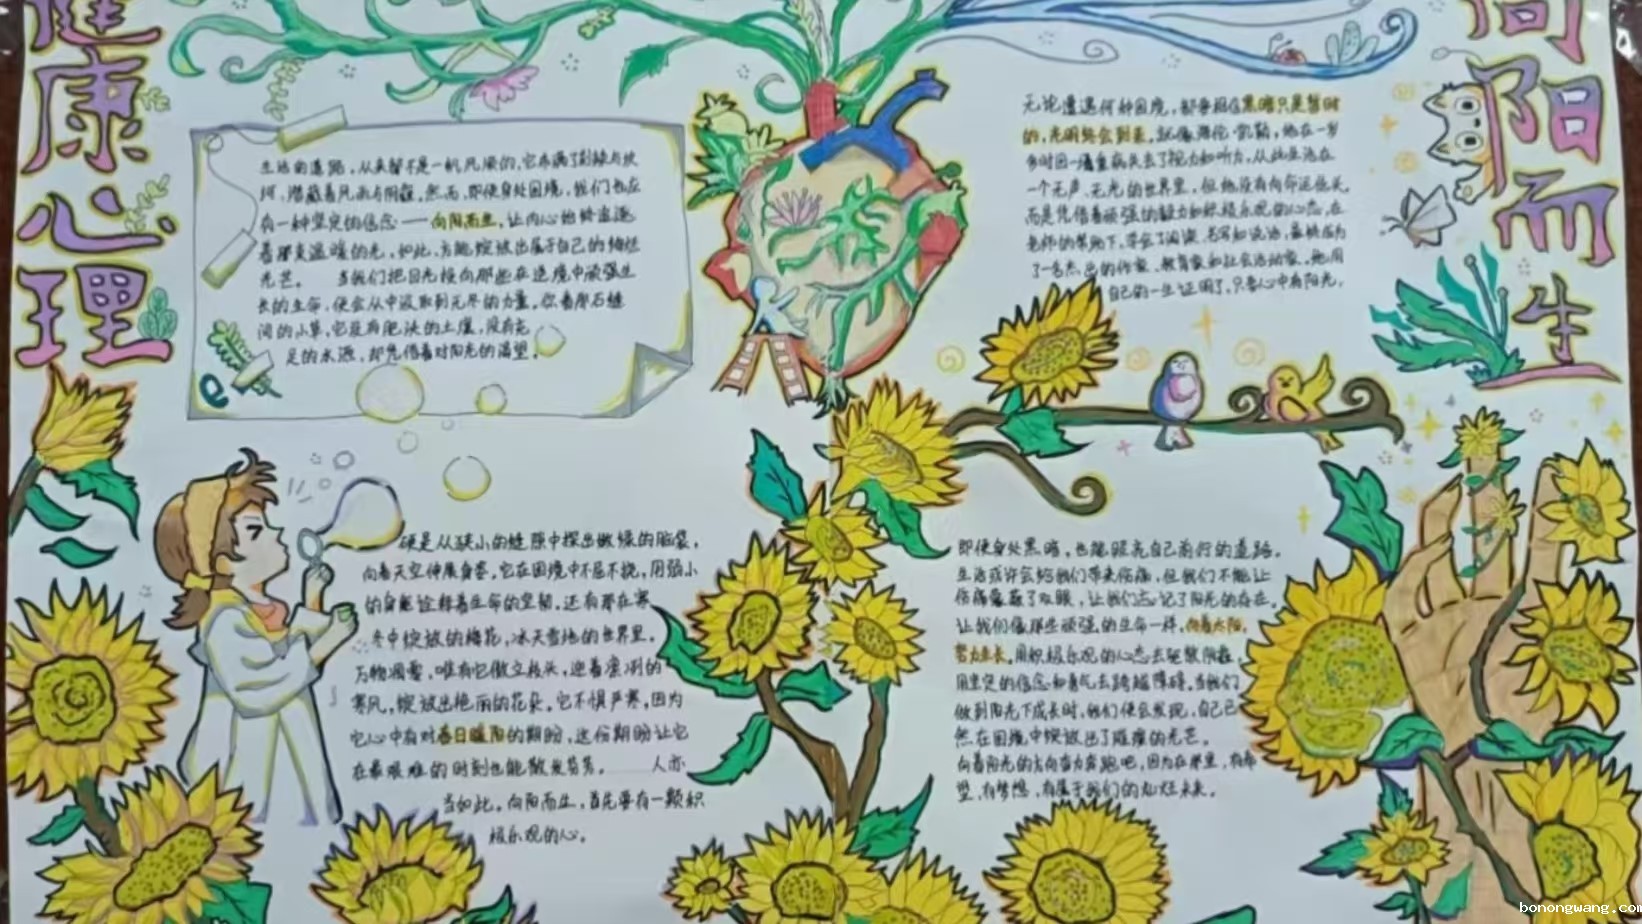 健康心理
向阳而生
生活的道路，从来都不是一帆风顺的，它布满了荆棘与坎
坷，潜藏着风雨与阴霾。然而，即便身处困境，我们也应
有一种坚定的信念——向阳而生，让内心始终追逐
着那束温暖的光。如此，方能绽放出属于自己的绚烂
光芒。 当我们把目光投向那些在逆境中顽强生
长的生命，便会从中汲取到无尽的力量。你看那石缝
间的小草，它没有肥沃的土壤，没有充
足的水源，却凭借着对阳光的渴望。
硬是从狭小的缝隙中探出嫩绿的脑袋，
向着天空伸展身姿。它在困境中不屈不挠，用弱小
的身躯诠释着生命的坚韧。还有那在寒
冬中绽放的梅花，冰天雪地的世界里，
万物凋零，唯有它傲立枝头，迎着凛冽的
寒风，绽放出艳丽的花朵。它不惧严寒，因为
它心中有对春日暖阳的期盼，这份期盼让它
在最艰难的时刻也能散发芬芳。 人亦
当如此。向阳而生，首先要有一颗积
极乐观的心。
无论遭遇何种困境，都要相信黑暗只是暂时
的，光明终会到来。就像海伦·凯勒，她在一岁
多时因一场重病失去了视力和听力，从此生活在
一个无声、无光的世界里，但她没有向命运低头，
而是凭借着顽强的毅力和积极乐观的心态，在
老师的帮助下，学会了阅读、书写和说话，最终成为
了一名杰出的作家、教育家和社会活动家。她用
自己的一生证明了，只要心中有阳光，
即便身处黑暗，也能照亮自己前行的道路。
生活或许会给我们带来伤痛，但我们不能让
伤痛蒙蔽了双眼，让我们忘记了阳光的存在。
让我们像那些顽强的生命一样，向着太阳，
努力生长。用积极乐观的心态去驱散阴霾，
用坚定的信念和勇气去跨越障碍。当我们
做到阳光下成长时，我们便会发现，自己已
然在困境中绽放出了璀璨的光芒。
向着阳光的方向奋力奔跑吧，因为在那里，有希
望，有梦想，有属于我们的灿烂未来。
bonongwang.com